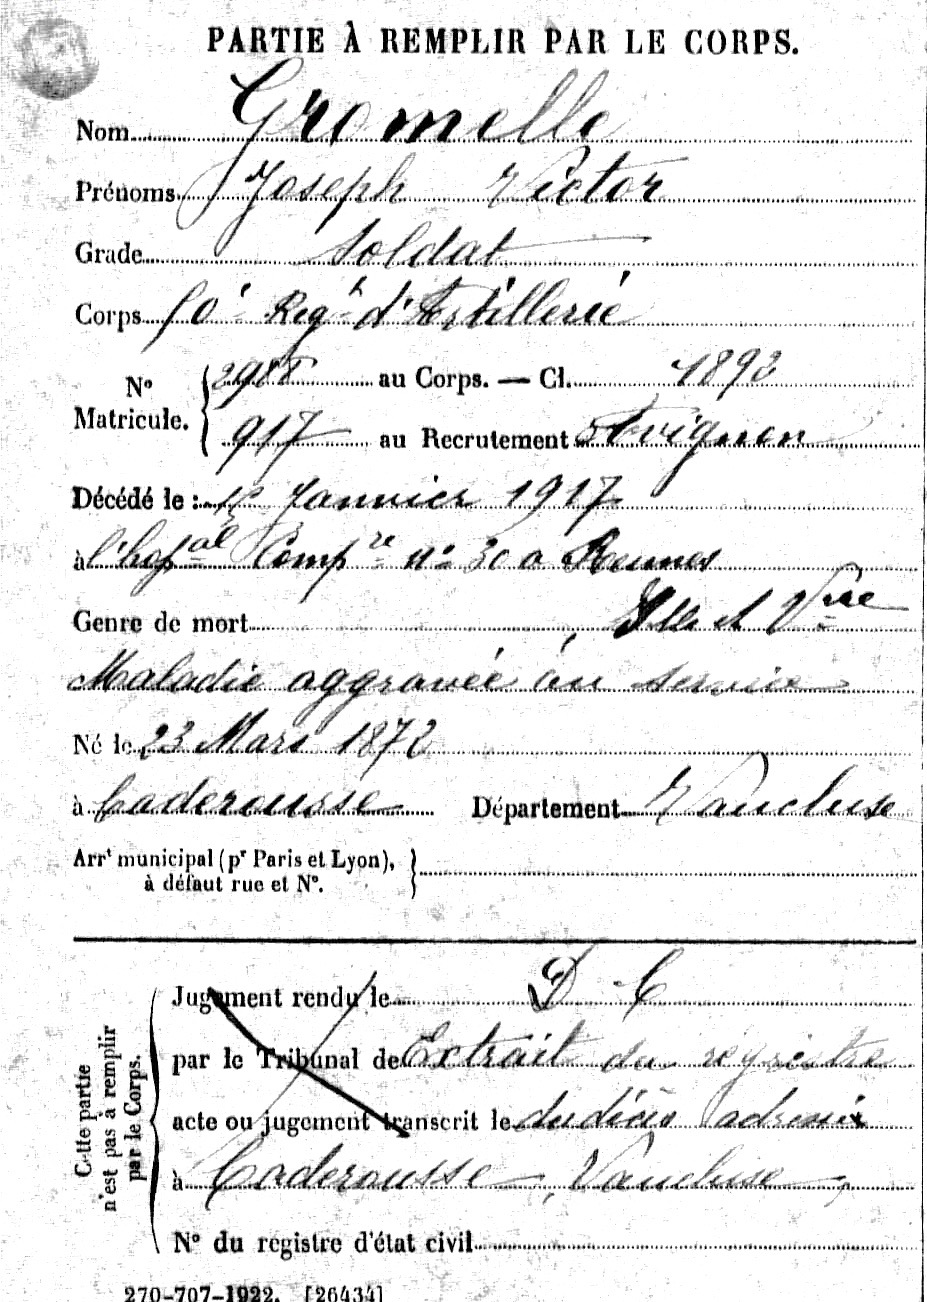 PARTIE À REMPLIR PAR LE CORPS.
Nom Gromelle
Prénoms Joseph Victor
Grade soldat
Corps 50e Regt d'Artillerie
No Matricule. 2988 au Corps. — Cl. 1892
917 au Recrutement Avignon
Décédé le : Janvier 1917
à l'hopal Compre no 30 a Rennes
Genre de mort , Ille et Vne
Maladie aggravée au service
Né le 23 Mars 1872
à Caderousse Département Vaucluse
Arrt municipal (pr Paris et Lyon),
à défaut rue et No.
D C
Jugement rendu le
par le Tribunal de Extrait du registre
acte ou jugement transcrit le du décès adressé
à Caderousse, Vaucluse
No du registre d'état civil
Cette partie
n'est pas à remplir
par le Corps.
270-707-1922. [26434]